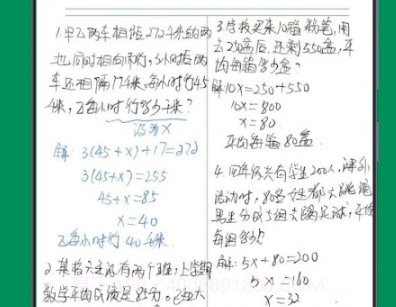 1.甲乙两车相距272千米的两
地,同时相向而行,3小时后两
车还相隔17千米,每小时行45
千米,乙每小时行多少千米?
设为X
解: 3(45+x)+17=272
3(45+x)=255
45+x=85
x=40
乙每小时行40千米.
2.某校六年级有两个班,上学期
数学平均成绩是85分。已知六
3.学校买来10箱粉笔,用
去250盒后,还剩550盒,平
均每箱多少盒?
解10x=250+550
10x=800
x=80
平均每箱80盒
4.四年级共有学生200人,课外
活动时,80名女生都去跳绳
男生分成5组去踢足球,平均
每组多少人
解:5x+80=200
5x=160
x=32